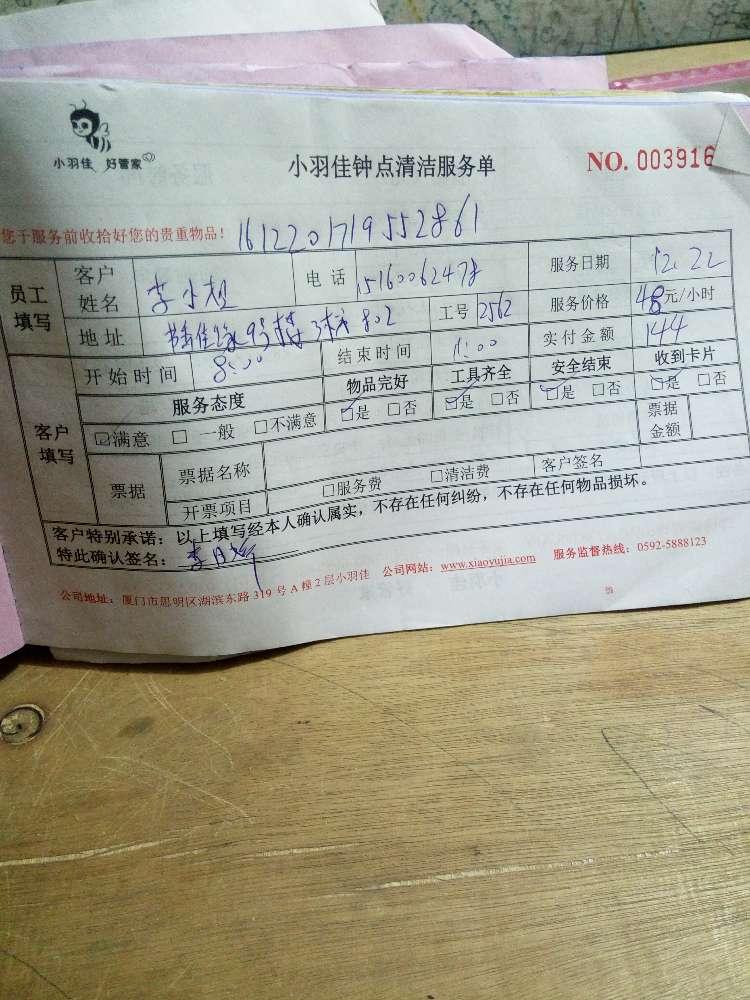 小羽佳 好管家
小羽佳钟点清洁服务单
NO. 003916
您于服务前收拾好您的贵重物品！ 1612201719552861
员工填写 客户姓名 李小姐 电话 15160062478 服务日期 12.22
地址 9号楼 802 工号 2562 服务价格 48元/小时
开始时间 8:00 结束时间 11:00 实付金额 144
客户填写 服务态度 物品完好 工具齐全 安全结束 收到卡片
☑满意 □ 一般 □不满意 ☑是 □否 ☑是 □否 ☑是 □否 ☑是 □否
票据 票据名称 票据金额
开票项目 □服务费 □清洁费 客户签名
客户特别承诺：以上填写经本人确认属实，不存在任何纠纷，不存在任何物品损坏。
特此确认签名：李月
公司地址：厦门市思明区湖滨东路319号A幢2层小羽佳 公司网站：www.xiaoyujia.com 服务监督热线：0592-5888123